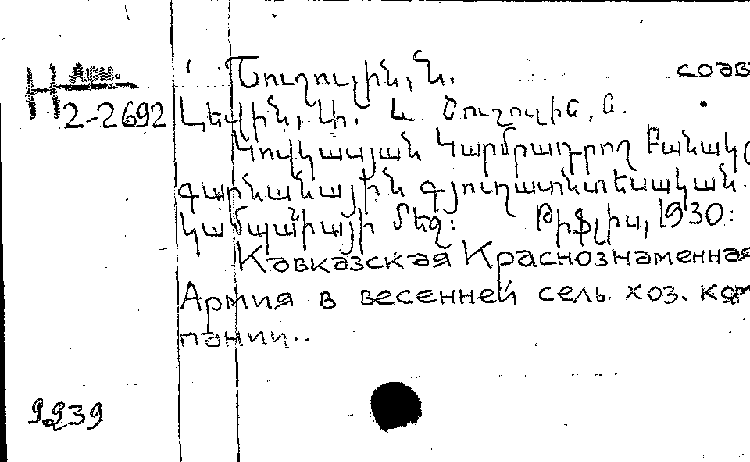 Н Арм.
2-2692
Շուշուլին, Ն. соав
Լեվին, Վ. և Շուշուլին, Ն.
Կովկասյան Կարմրադրոշ Բանակը
գարնանային գյուղատնտեսական
կամպանիայի մեջ: Թիֆլիս, 1930:
Кавказская Краснознаменная
Армия в весенней сель. хоз. кам
пании..
9239